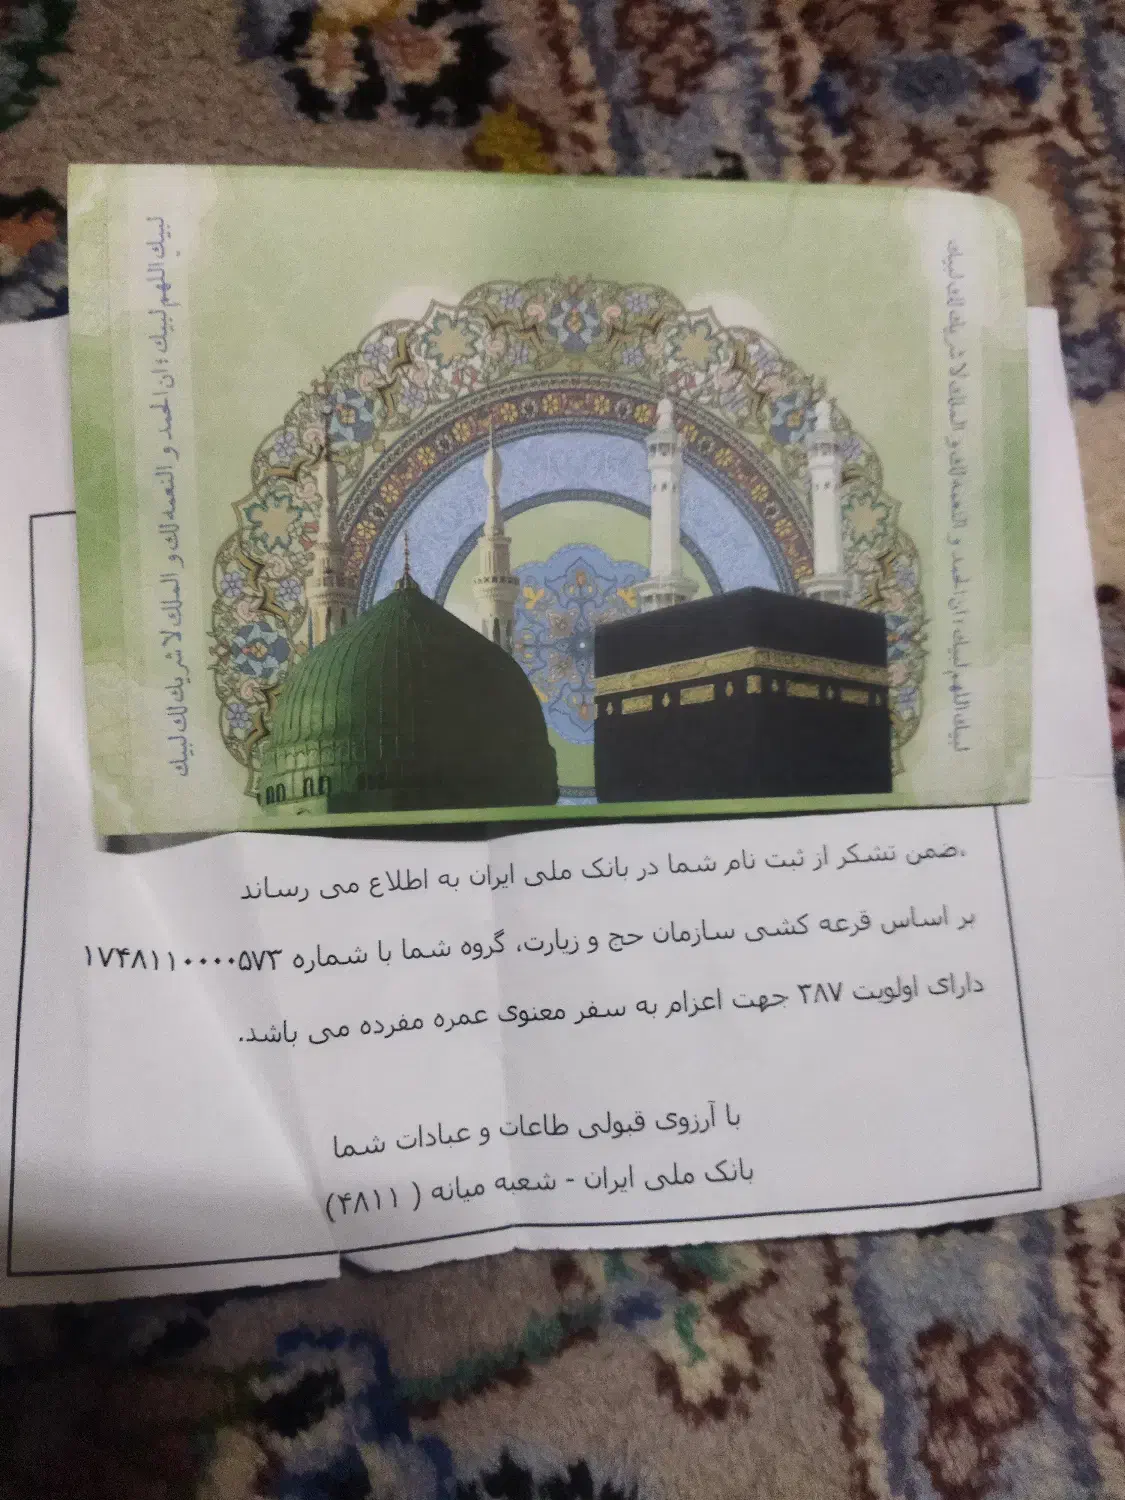 لبيك اللهم لبيك ، ان الحمد و النعمه لك و الملك لا شريك لك لبيك
لبيك اللهم لبيك ، ان الحمد و النعمه لك و الملك لا شريك لك لبيك
ضمن تشکر از ثبت نام شما در بانک ملی ایران به اطلاع می رساند
بر اساس قرعه کشی سازمان حج و زیارت، گروه شما با شماره ۱۷۴۸۱۱۰۰۰۰۵۷۳
دارای اولویت ۳۸۷ جهت اعزام به سفر معنوی عمره مفرده می باشد.
با آرزوی قبولی طاعات و عبادات شما
بانک ملی ایران - شعبه میانه ( ۴۸۱۱)